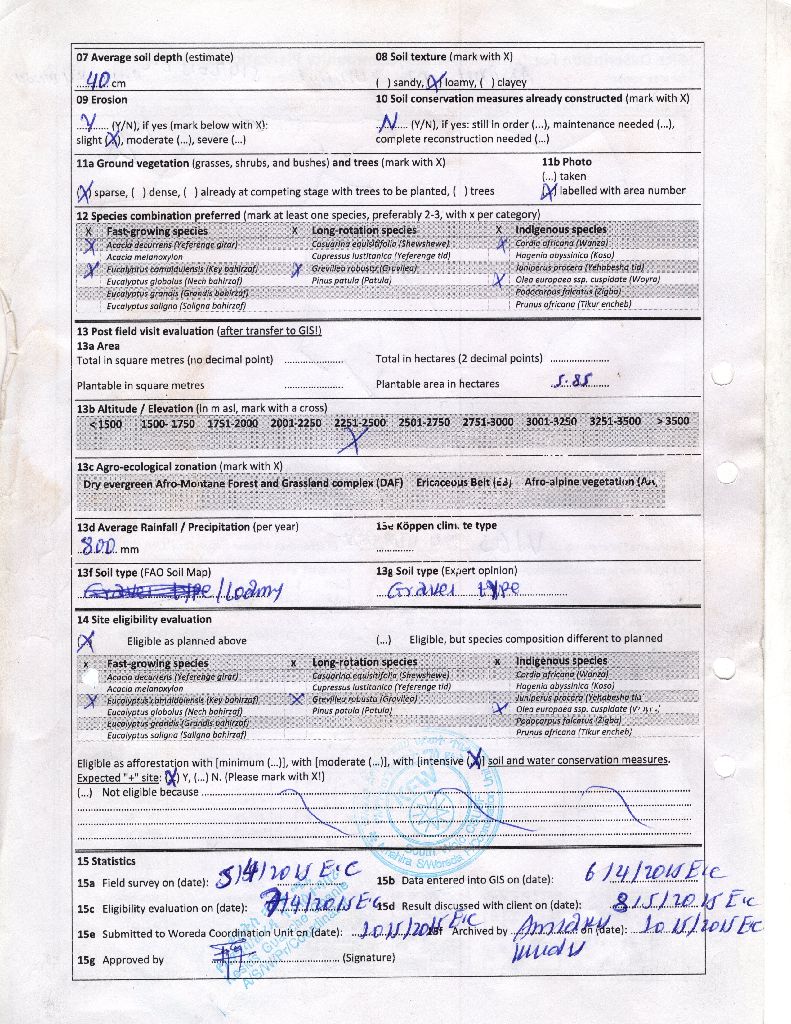 07 Average soil depth (estimate) 08 Soil texture (mark with X)
40 cm ( ) sandy, (X) loamy, ( ) clayey
09 Erosion 10 Soil conservation measures already constructed (mark with X)
Y (Y/N), if yes (mark below with X): N (Y/N), if yes: still in order (...), maintenance needed (...),
slight (X), moderate (...), severe (...) complete reconstruction needed (...)
11a Ground vegetation (grasses, shrubs, and bushes) and trees (mark with X) 11b Photo
(...) taken
(X) sparse, ( ) dense, ( ) already at competing stage with trees to be planted, ( ) trees (X) labelled with area number
12 Species combination preferred (mark at least one species, preferably 2-3, with x per category)
X Fast-growing species X Long-rotation species X Indigenous species
X Acacia decurrens (Yeferenge girar) Casuarina equisitifolia (Shewshewe) X Cordia africana (Wanza)
Acacia melanoxylon Cupressus lustitanica (Yeferenge tid) Hagenia abyssinica (Koso)
X Eucalyptus camaldulensis (Key bahirzaf) X Grevillea robusta (Gravilea) Juniperus procera (Yehabesha tid)
Eucalyptus globolus (Nech bahirzaf) Pinus patula (Patula) X Olea europaea ssp. cuspidate (Woyra)
Eucalyptus grandis (Grandis bahirzaf) Podocarpus falcatus (Zigba)
Eucalyptus saligna (Saligna bahirzaf) Prunus africana (Tikur encheb)
13 Post field visit evaluation (after transfer to GIS!)
13a Area
Total in square metres (no decimal point) .................... Total in hectares (2 decimal points) ....................
Plantable in square metres .................... Plantable area in hectares 5.85
13b Altitude / Elevation (In m asl, mark with a cross)
<1500 1500- 1750 1751-2000 2001-2250 2251-2500 2501-2750 2751-3000 3001-3250 3251-3500 > 3500
X
13c Agro-ecological zonation (mark with X)
Dry evergreen Afro-Montane Forest and Grassland complex (DAF) Ericaceous Belt Afro-alpine vegetation
13d Average Rainfall / Precipitation (per year) 13e Köppen climate type
800 mm .............
13f Soil type (FAO Soil Map) 13g Soil type (Expert opinion)
Gravel type /Loamy Gravel type
14 Site eligibility evaluation
X Eligible as planned above (...) Eligible, but species composition different to planned
x Fast-growing species x Long-rotation species x Indigenous species
Acacia decurrens (Yeferenge girar) Casuarina equisitifolia (Shewshewe) Cordia africana (Wanza)
Acacia melanoxylon Cupressus lustitanica (Yeferenge tid) Hagenia abyssinica (Koso)
X Eucalyptus camaldulensis (Key bahirzaf) X Grevillea robusta (Gravilea) Juniperus procera (Yehabesha tid
Eucalyptus globolus (Nech bahirzaf) Pinus patula (Patula) X Olea europaea ssp. cuspidate
Eucalyptus grandis (Grandis bahirzaf) Podocarpus falcatus (Zigba)
Eucalyptus saligna (Saligna bahirzaf) Prunus africana (Tikur encheb)
Eligible as afforestation with [minimum (...)], with [moderate (...)], with [intensive (X)] soil and water conservation measures.
Expected "+" site: (X) Y, (...) N. (Please mark with X!)
(...) Not eligible because
15 Statistics
15a Field survey on (date): 5/4/2015 E.C 15b Data entered into GIS on (date): 6/4/2015 E.C
15c Eligibility evaluation on (date): 7/4/2015 E.C 15d Result discussed with client on (date): 8/5/2015 E.C
15e Submitted to Woreda Coordination Unit on (date): 10/5/2015 E.C 15f Archived by on (date): 10/5/2015 E.C
15g Approved by (Signature)